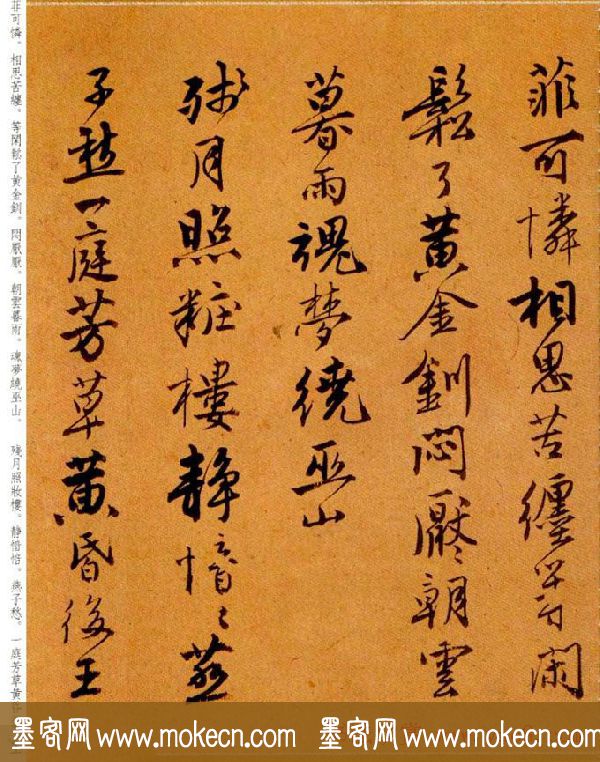 菲可憐相思苦纏等閑
鬆了黃金釧悶厭〻朝雲
暮雨魂夢繞巫山
殘月照粧樓靜愔〻燕
子愁一庭芳草黃昏後王
非可憐。相思苦纏。等閑鬆了黃金釧。悶厭厭。朝雲暮雨。魂夢繞巫山。　殘月照妝樓。靜愔愔。燕子愁。一庭芳草黃
墨客网 www.mokecn.com 墨客网 www.mokecn.com